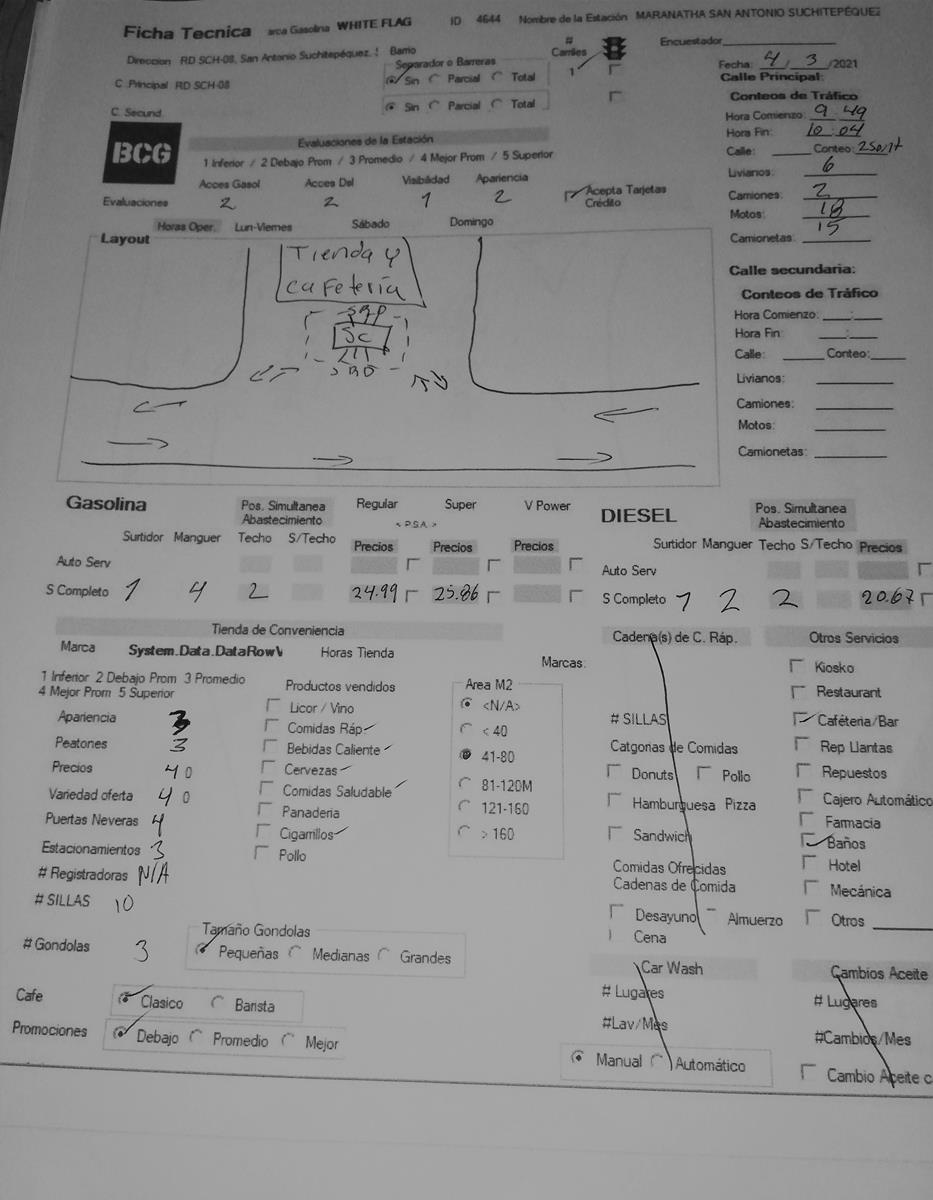 Ficha Tecnica arca Gasolina WHITE FLAG ID 4644 Nombre de la Estación MARANATHA SAN ANTONIO SUCHITEPÉQUEZ
Direccion RD SCH-08, San Antonio Suchitepéquez, S Barrio # Carriles Encuestador
Separador o Barreras 1 Fecha: 4/3/2021
C. Principal RD SCH-08 Sin Parcial Total Calle Principal:
Sin Parcial Total Conteos de Tráfico
C. Secund. Hora Comienzo: 9:49
BCG Evaluaciones de la Estación Hora Fin: 10:04
1 Inferior / 2 Debajo Prom / 3 Promedio / 4 Mejor Prom / 5 Superior Calle: Conteo:
Acces Gasol Acces Dsl Visibilidad Apariencia Livianos: 6
Evaluaciones 2 2 1 2 Acepta Tarjetas Crédito Camiones: 2
Motos: 18
Horas Oper. Lun-Viernes Sábado Domingo Camionetas: 15
Layout
Tienda y
cafetería
SC
Calle secundaria:
Conteos de Tráfico
Hora Comienzo: __:__
Hora Fin: __:__
Calle: Conteo:
Livianos:
Camiones:
Motos:
Camionetas:
Gasolina Pos. Simultanea Abastecimiento Regular Super V Power DIESEL Pos. Simultanea Abastecimiento
< P.S.A. >
Surtidor Manguer Techo S/Techo Precios Precios Precios Surtidor Manguer Techo S/Techo Precios
Auto Serv Auto Serv
S Completo 1 4 2 24.99 25.86 S Completo 1 2 2 20.67
Tienda de Conveniencia Cadena(s) de C. Ráp. Otros Servicios
Marca System.Data.DataRowV Horas Tienda Marcas:
1 Inferior 2 Debajo Prom 3 Promedio
4 Mejor Prom 5 Superior
Apariencia 3
Peatones 3
Precios 4 0
Variedad oferta 4 0
Puertas Neveras 4
Estacionamientos 3
# Registradoras N/A
# SILLAS 10
# Gondolas 3
Productos vendidos
Licor / Vino
Comidas Ráp
Bebidas Caliente
Cervezas
Comidas Saludable
Panaderia
Cigarrillos
Pollo
Area M2
<N/A>
< 40
41-80
81-120M
121-160
> 160
# SILLAS
Catgorias de Comidas
Donuts Pollo
Hamburguesa Pizza
Sandwich
Comidas Ofrecidas
Cadenas de Comida
Desayuno Almuerzo
Cena
Kiosko
Restaurant
Caféteria/Bar
Rep Llantas
Repuestos
Cajero Automático
Farmacia
Baños
Hotel
Mecánica
Otros
Tamaño Gondolas
Pequeñas Medianas Grandes
Cafe Clasico Barista
Promociones Debajo Promedio Mejor
Car Wash
# Lugares
#Lav/Mes
Manual Automático
Cambios Aceite
# Lugares
#Cambios/Mes
Cambio Aceite c